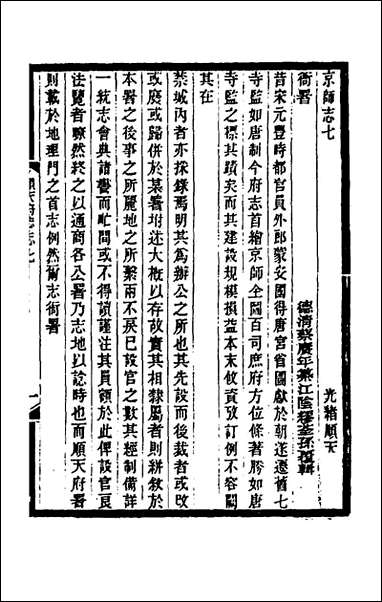 京師志七　光緒順天
衙署　德清蔡賡年纂江陰繆荃孫覆輯
昔宋元豐時都官員外郎蒙安國得唐宮省圖獻於朝遂遷舊七
寺監如唐制今府志首繪京師全圖百司庶府方位條著勝如唐
寺監之標其蹟矣而其建設規模損益本末攸資攷訂例不容闕
其在
禁城內者亦採錄焉明其為辦公之所也其先設而後裁者或改
或廢或歸併於某署坿述大概以存故實其相隸屬者則緐敘於
本署之後事之所麗地之所繫兩不戾已設官之數其經制備詳
一統志會典諸書而吏閒或不得讀謹注其員額於此俾設官良
法覽者瞭然終之以通商各公署乃志地以諗時也而順天府署
則載於地理門之首志例然爾志衙署
順天府志七